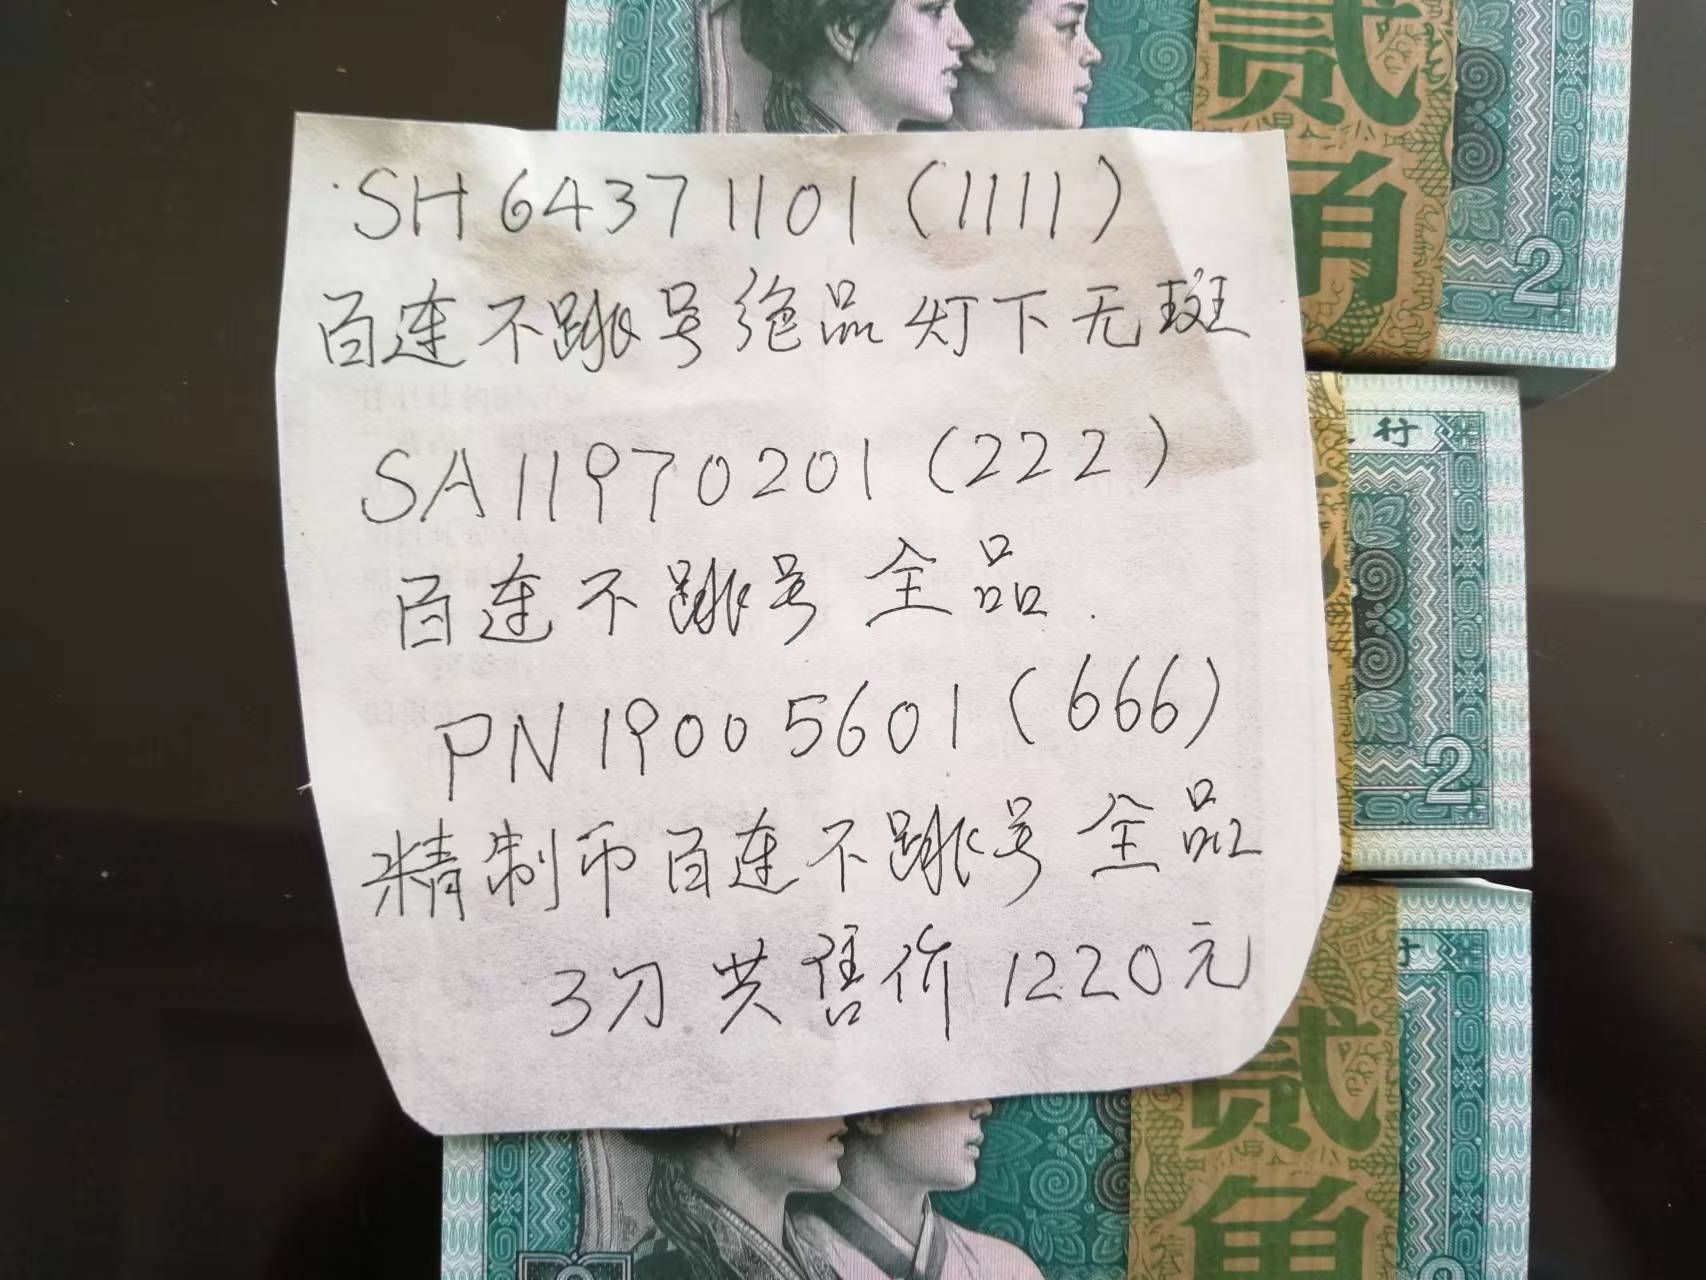 贰
角
2
SH64371101(1111)
百连不跳号绝品灯下无斑
行
SA11970201(222)
百连不跳号全品.
2
PN19005601(666)
精制币百连不跳号全品
3刀共售价1220元
行
贰
角